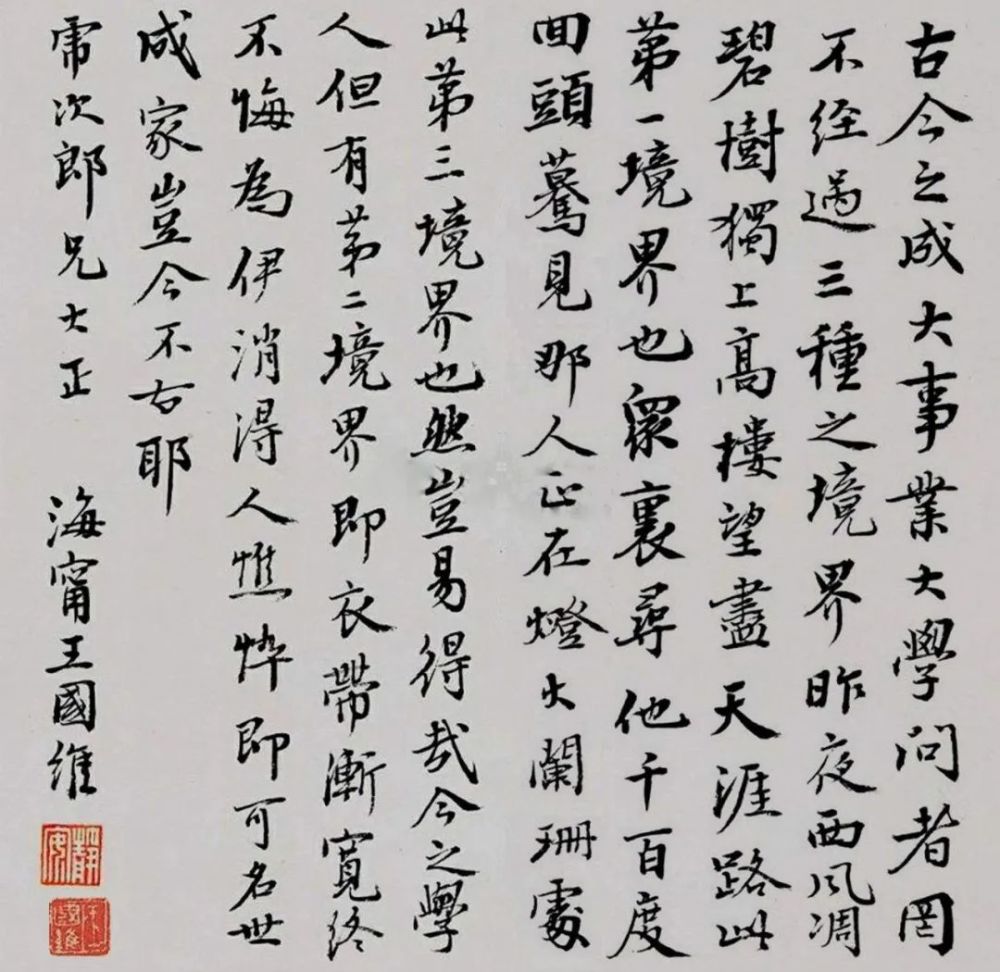 古今之成大事業大學問者罔
不经過三種之境界昨夜西風凋
碧樹獨上高樓望盡天涯路此
第一境界也眾裏尋他千百度
回頭驀見那人正在燈火闌珊處
此第三境界也然豈易得哉今之學
人但有第二境界即衣帶漸寬終
不悔為伊消得人憔悴即可名世
成家豈今不古耶
次郎兄大正
海甯王國維
靜安